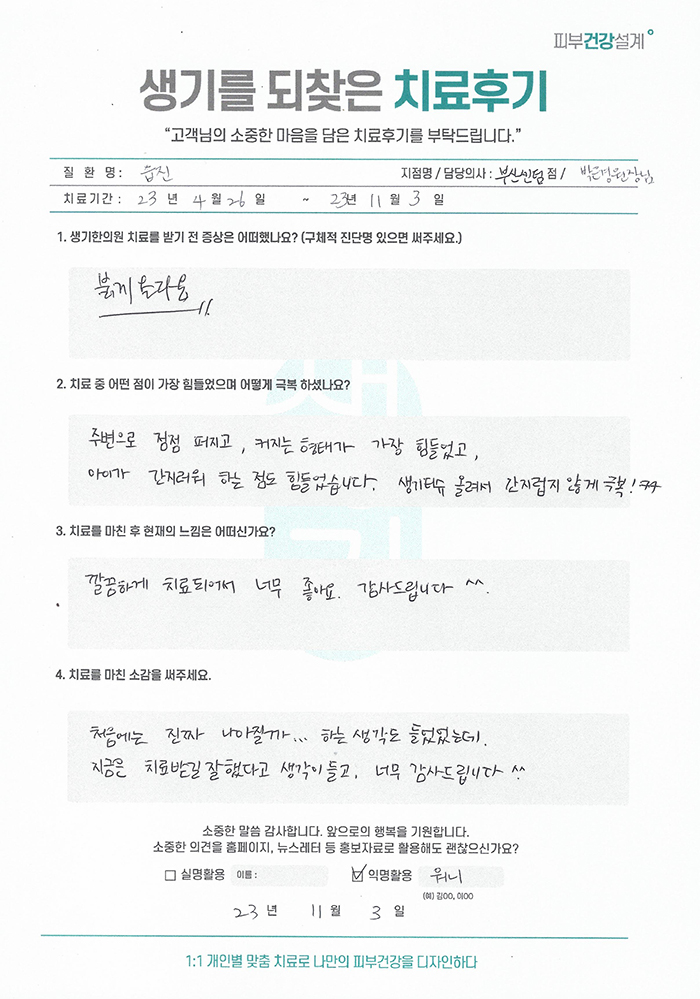 피부건강설계
생기를 되찾은 치료후기
“고객님의 소중한 마음을 담은 치료후기를 부탁드립니다.”
질 환 명 : 습진 지점명 / 담당의사 : 부산센텀 점 / 박은경원장님
치료기간 : 23 년 4 월 26 일 ~ 23년 11 월 3 일
1. 생기한의원 치료를 받기 전 증상은 어떠했나요? (구체적 진단명 있으면 써주세요.)
붉게 올라옴
2. 치료 중 어떤 점이 가장 힘들었으며 어떻게 극복 하셨나요?
주변으로 점점 퍼지고, 커지는 형태가 가장 힘들었고,
아이가 간지러워 하는 점도 힘들었습니다. 생기티슈 올려서 간지럽지 않게 극복!
3. 치료를 마친 후 현재의 느낌은 어떠신가요?
깔끔하게 치료되어서 너무 좋아요. 감사드립니다 ^^.
4. 치료를 마친 소감을 써주세요.
처음에는 진짜 나아질까... 하는 생각도 들었었는데.
지금은 치료받길 잘했다고 생각이 들고, 너무 감사드립니다 ^^
소중한 말씀 감사합니다. 앞으로의 행복을 기원합니다.
소중한 의견을 홈페이지, 뉴스레터 등 홍보자료로 활용해도 괜찮으신가요?
실명활용 이름 : 익명활용 워니
(예) 김OO, 이OO
23 년 11 월 3 일
1:1 개인별 맞춤 치료로 나만의 피부건강을 디자인하다